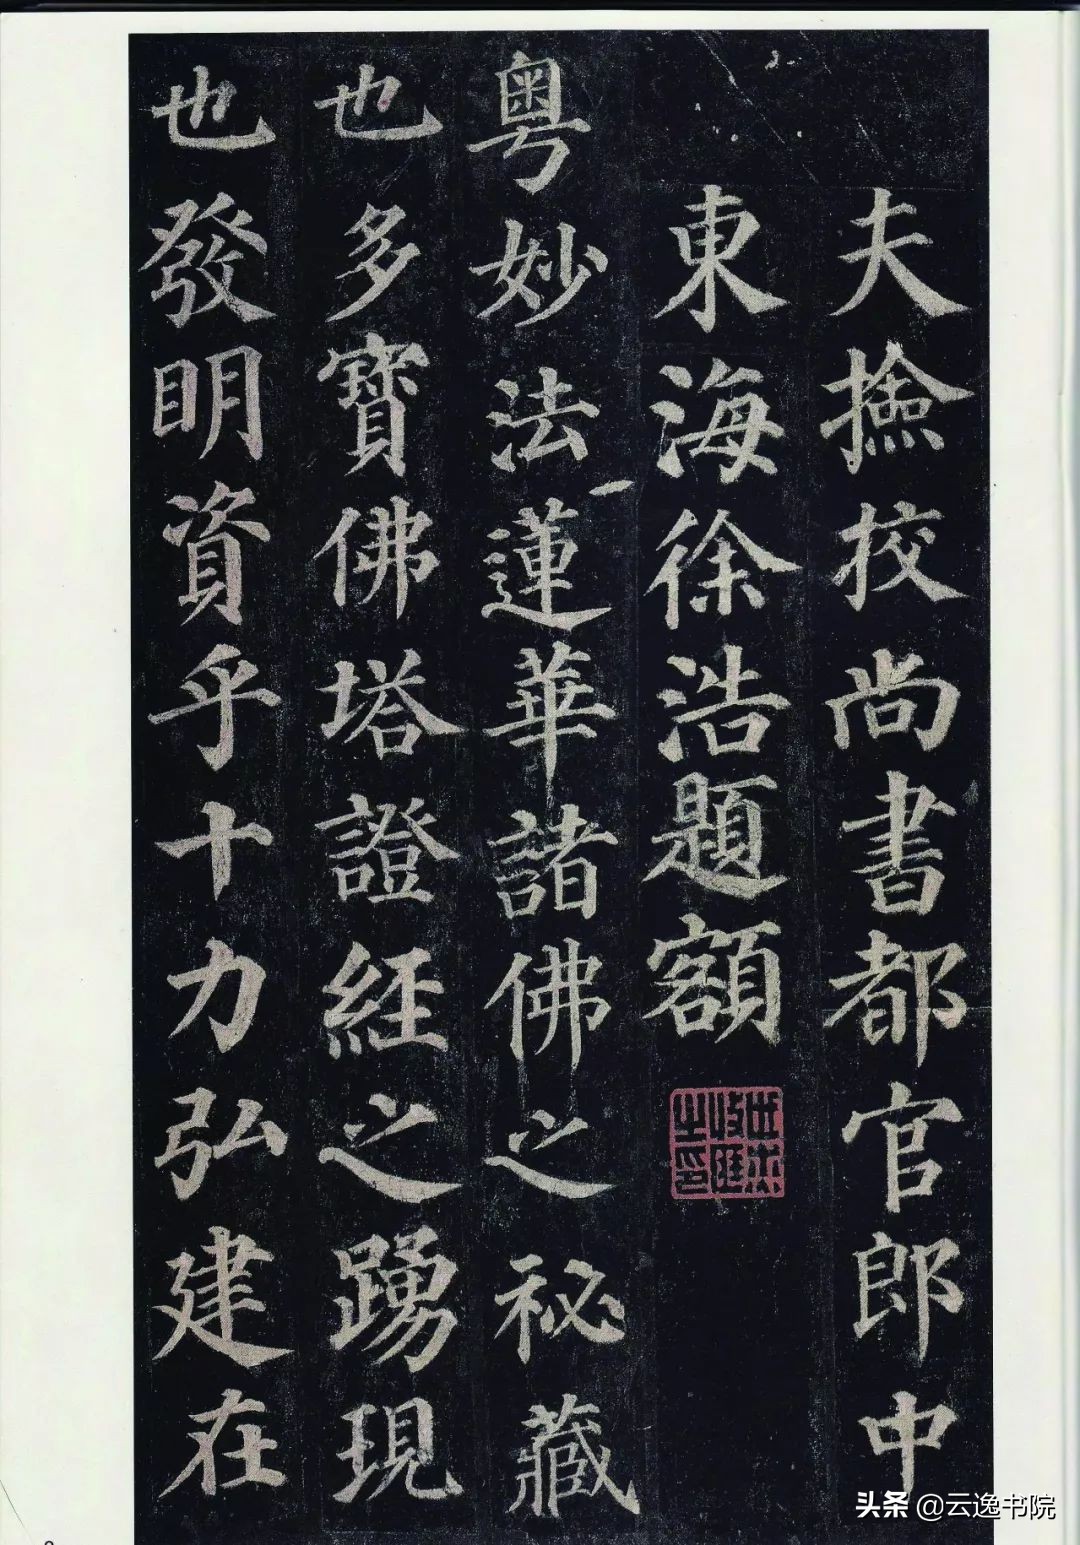 夫撿挍尚書都官郎中
東海徐浩題額
粤妙法蓮華諸佛之秘藏
也多寶佛塔證經之踴現
也發明資乎十力弘建在
头条 @云逸书院